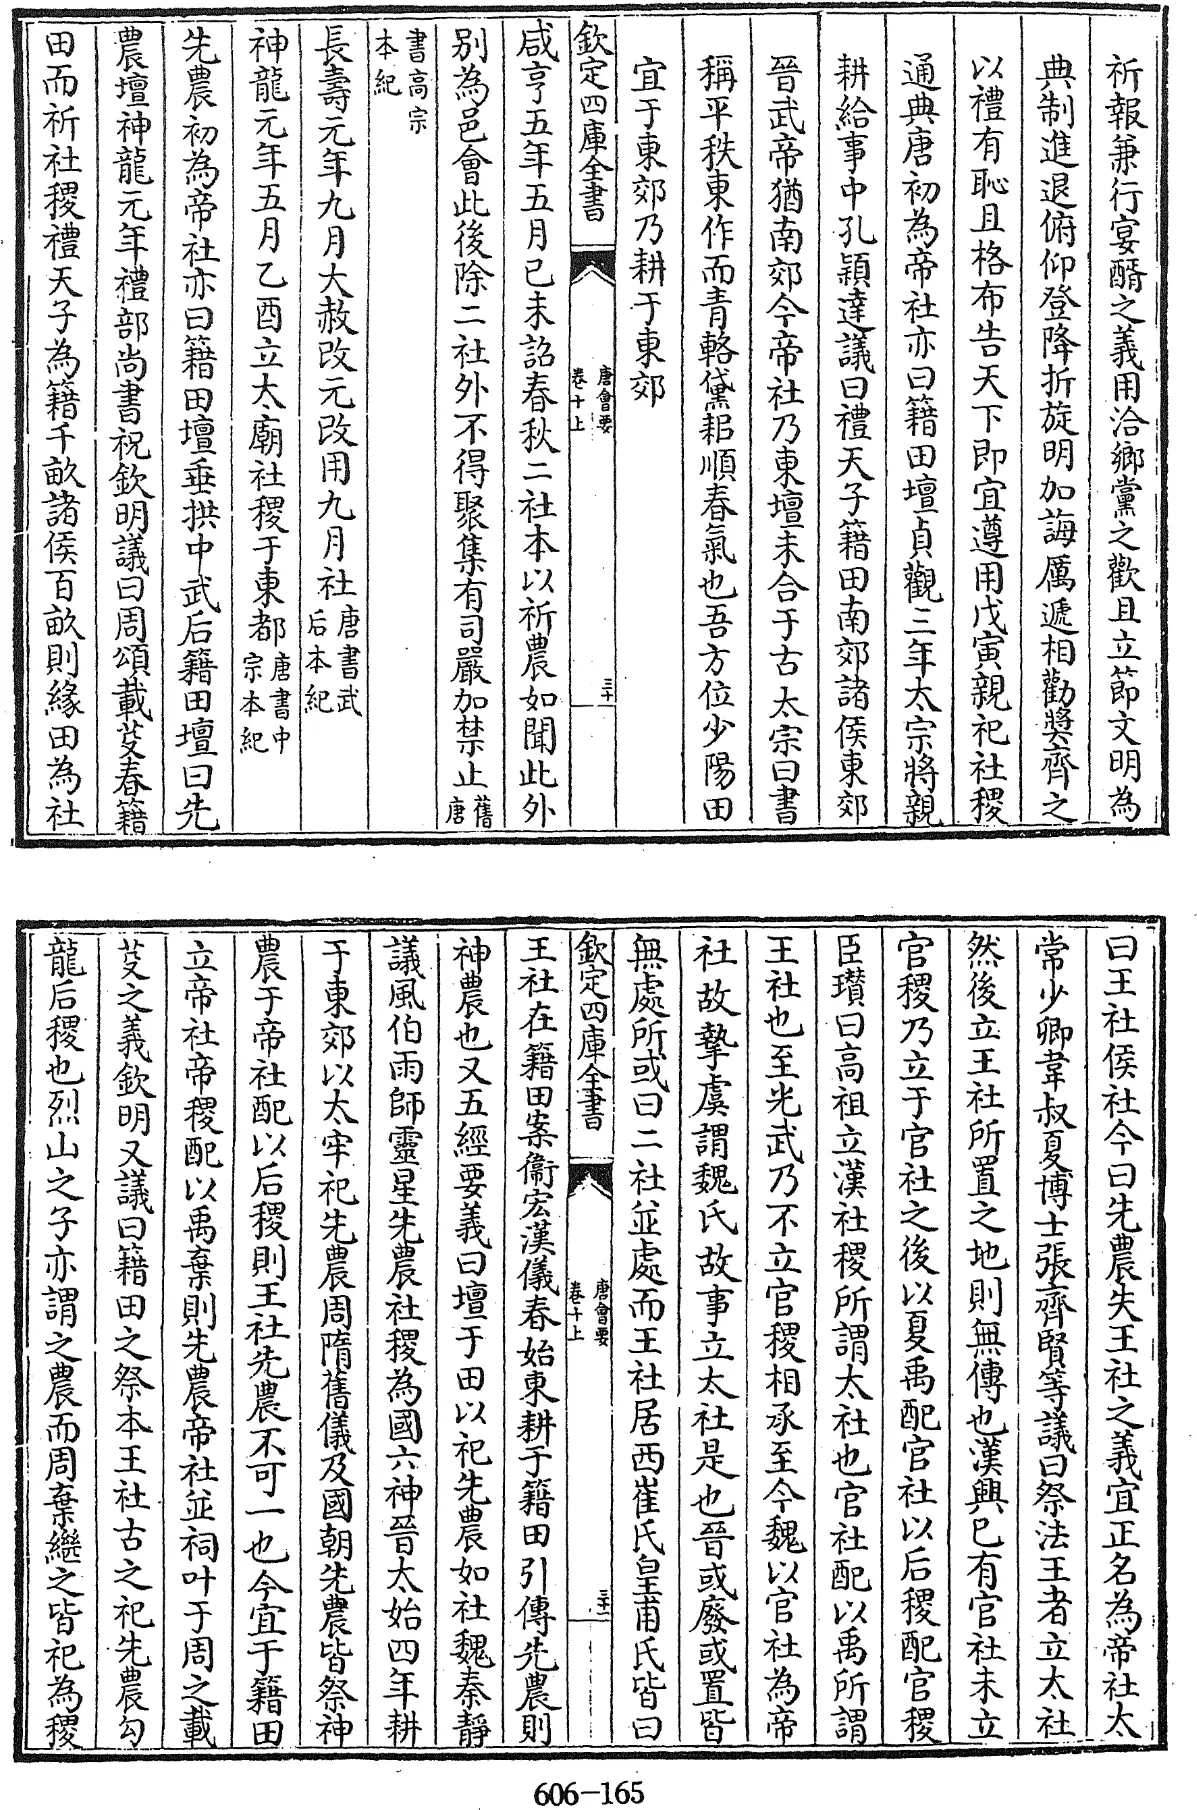 祈報兼行宴醑之義用洽鄉黨之歡且立節文明為
典制進退俯仰登降折旋明加誨厲遞相勸奬齊之
以禮有恥且格布告天下即宜遵用戊寅親祀社稷
通典唐初為帝社亦曰籍田壇貞觀三年太宗將親
耕給事中孔穎達議曰禮天子籍田南郊諸侯東郊
晉武帝猶南郊今帝社乃東壇未合于古太宗曰書
稱平秩東作而青輅黛耜順春氣也吾方位少陽田
宜于東郊乃耕于東郊
欽定四庫全書
唐會要
卷十上
三十
咸亨五年五月己未詔春秋二社本以祈農如聞此外
别為邑會此後除二社外不得聚集有司嚴加禁止舊唐
書高宗本紀
長壽元年九月大赦改元改用九月社唐書武后本紀
神龍元年五月乙酉立太廟社稷于東都唐書中宗本紀
先農初為帝社亦曰籍田壇垂拱中武后籍田壇曰先
農壇神龍元年禮部尚書祝欽明議曰周頌載芟春籍
田而祈社稷禮天子為籍千畝諸侯百畝則緣田為社
曰王社侯社今曰先農失王社之義宜正名為帝社太
常少卿韋叔夏博士張齊賢等議曰祭法王者立太社
然後立王社所置之地則無傳也漢興已有官社未立
官稷乃立于官社之後以夏禹配官社以后稷配官稷
臣瓚曰高祖立漢社稷所謂太社也官社配以禹所謂
王社也至光武乃不立官稷相承至今魏以官社為帝
社故摯虞謂魏氏故事立太社是也晉或廢或置皆
無處所或曰二社並處而王社居西崔氏皇甫氏皆曰
欽定四庫全書
唐會要
卷十上
三十一
王社在籍田案衞宏漢儀春始東耕于籍田引傳先農則
神農也又五經要義曰壇于田以祀先農如社魏秦靜
議風伯雨師靈星先農社稷為國六神晉太始四年耕
于東郊以太牢祀先農周隋舊儀及國朝先農皆祭神
農于帝社配以后稷則王社先農不可一也今宜于籍田
立帝社帝稷配以禹棄則先農帝社並祠叶于周之載
芟之義欽明又議曰籍田之祭本王社古之祀先農勾
龍后稷也烈山之子亦謂之農而周棄繼之皆祀為稷
606-165